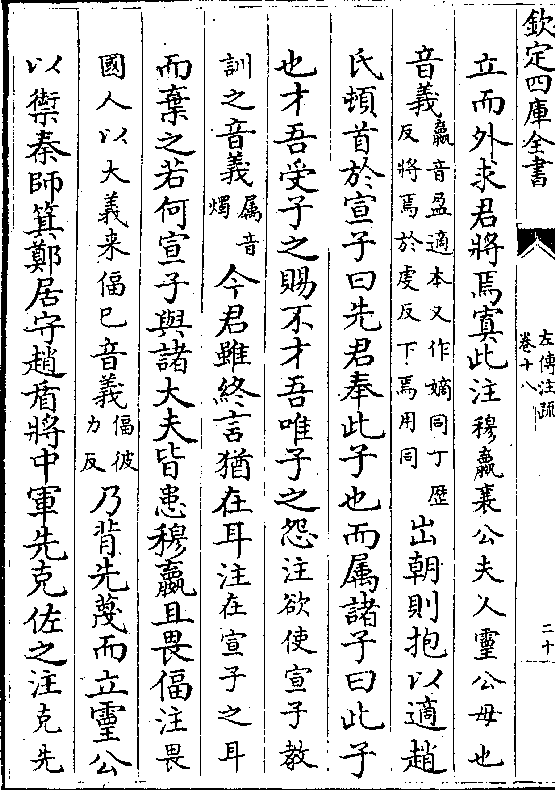 欽定四庫全書
左傳注疏
卷十八
二十
立而外求君將焉寘此注穆嬴襄公夫人靈公母也
音義嬴音盈適本又作嫡同丁歷
反將焉於虔反下焉用同
出朝則抱以適趙
氏頓首於宣子曰先君奉此子也而属諸子曰此子
也才吾受子之賜不才吾唯子之怨注欲使宣子教
訓之音義属音
燭
今君雖終言猶在耳注在宣子之耳
而棄之若何宣子與諸大夫皆患穆嬴且畏偪注畏
國人以大義来偪已音義偪彼
力反
乃背先蔑而立靈公
以禦秦師箕鄭居守趙盾將中軍先克佐之注克先